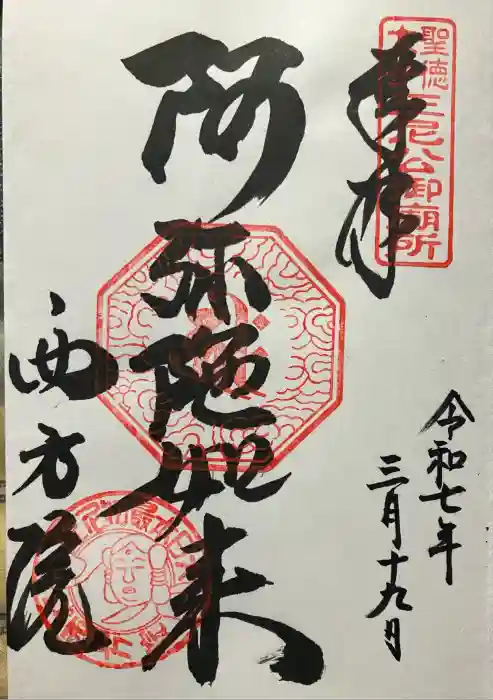 奉拝
聖徳太子三尼公御廟所
令和七年
三月十九日
阿弥陀如来
西方院